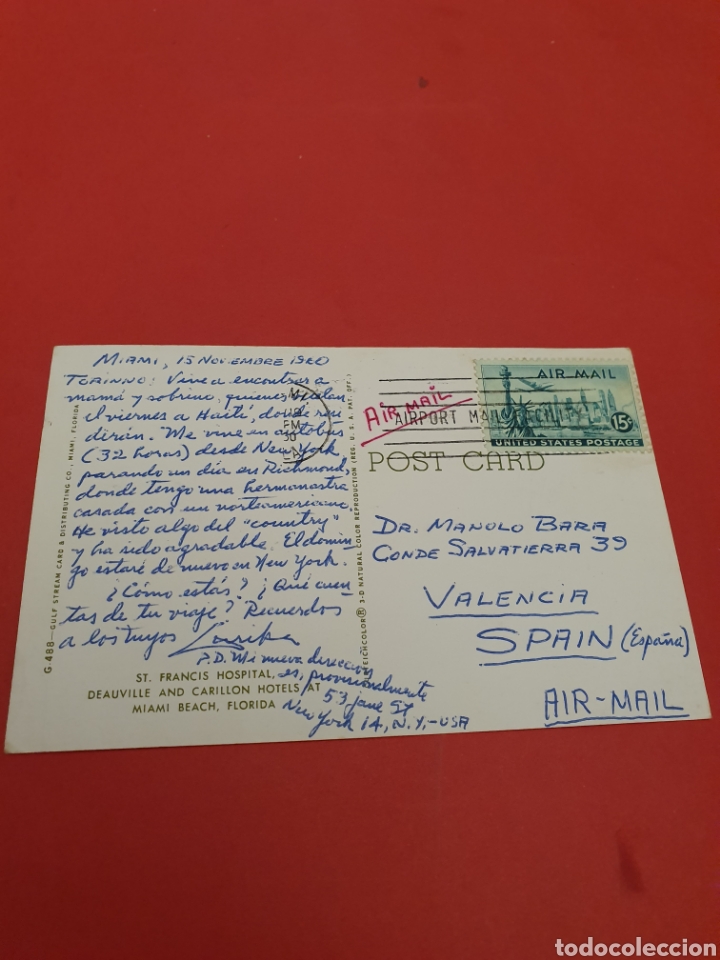 MIAMI, 15 NOVIEMBRE 1960
TORINNO: Vine a encontrar a
mamá y sobrino, quienes
el viernes a Haití, donde resi
dirán. Me vine en autobús
(32 horas) desde New York,
parando un día en Richmond,
donde tengo una hermanastra
casada con un norteamericano.
He visto algo del "country"
y ha sido agradable. El domin-
go estaré de nuevo en New York.
¿Cómo estás? ¿Qué cuen-
tas de tu viaje? Recuerdos
a los tuyos
P.D. Mi nueva direccion
es, provisionalmente
53 Jane St
New York 14, N.Y.-USA
G-488—GULF STREAM CARD & DISTRIBUTING CO., MIAMI, FLORIDA
ST. FRANCIS HOSPITAL,
DEAUVILLE AND CARILLON HOTELS AT
MIAMI BEACH, FLORIDA
3-D NATURAL COLOR REPRODUCTION (REG. U. S. PAT. OFF.)
PM
30
AIR MAIL
AIRPORT MAIL FACILITY
AIR MAIL
15¢
UNITED STATES POSTAGE
POST CARD
DR. MANOLO BARA
CONDE SALVATIERRA 39
VALENCIA
SPAIN (España)
AIR-MAIL
todocoleccion